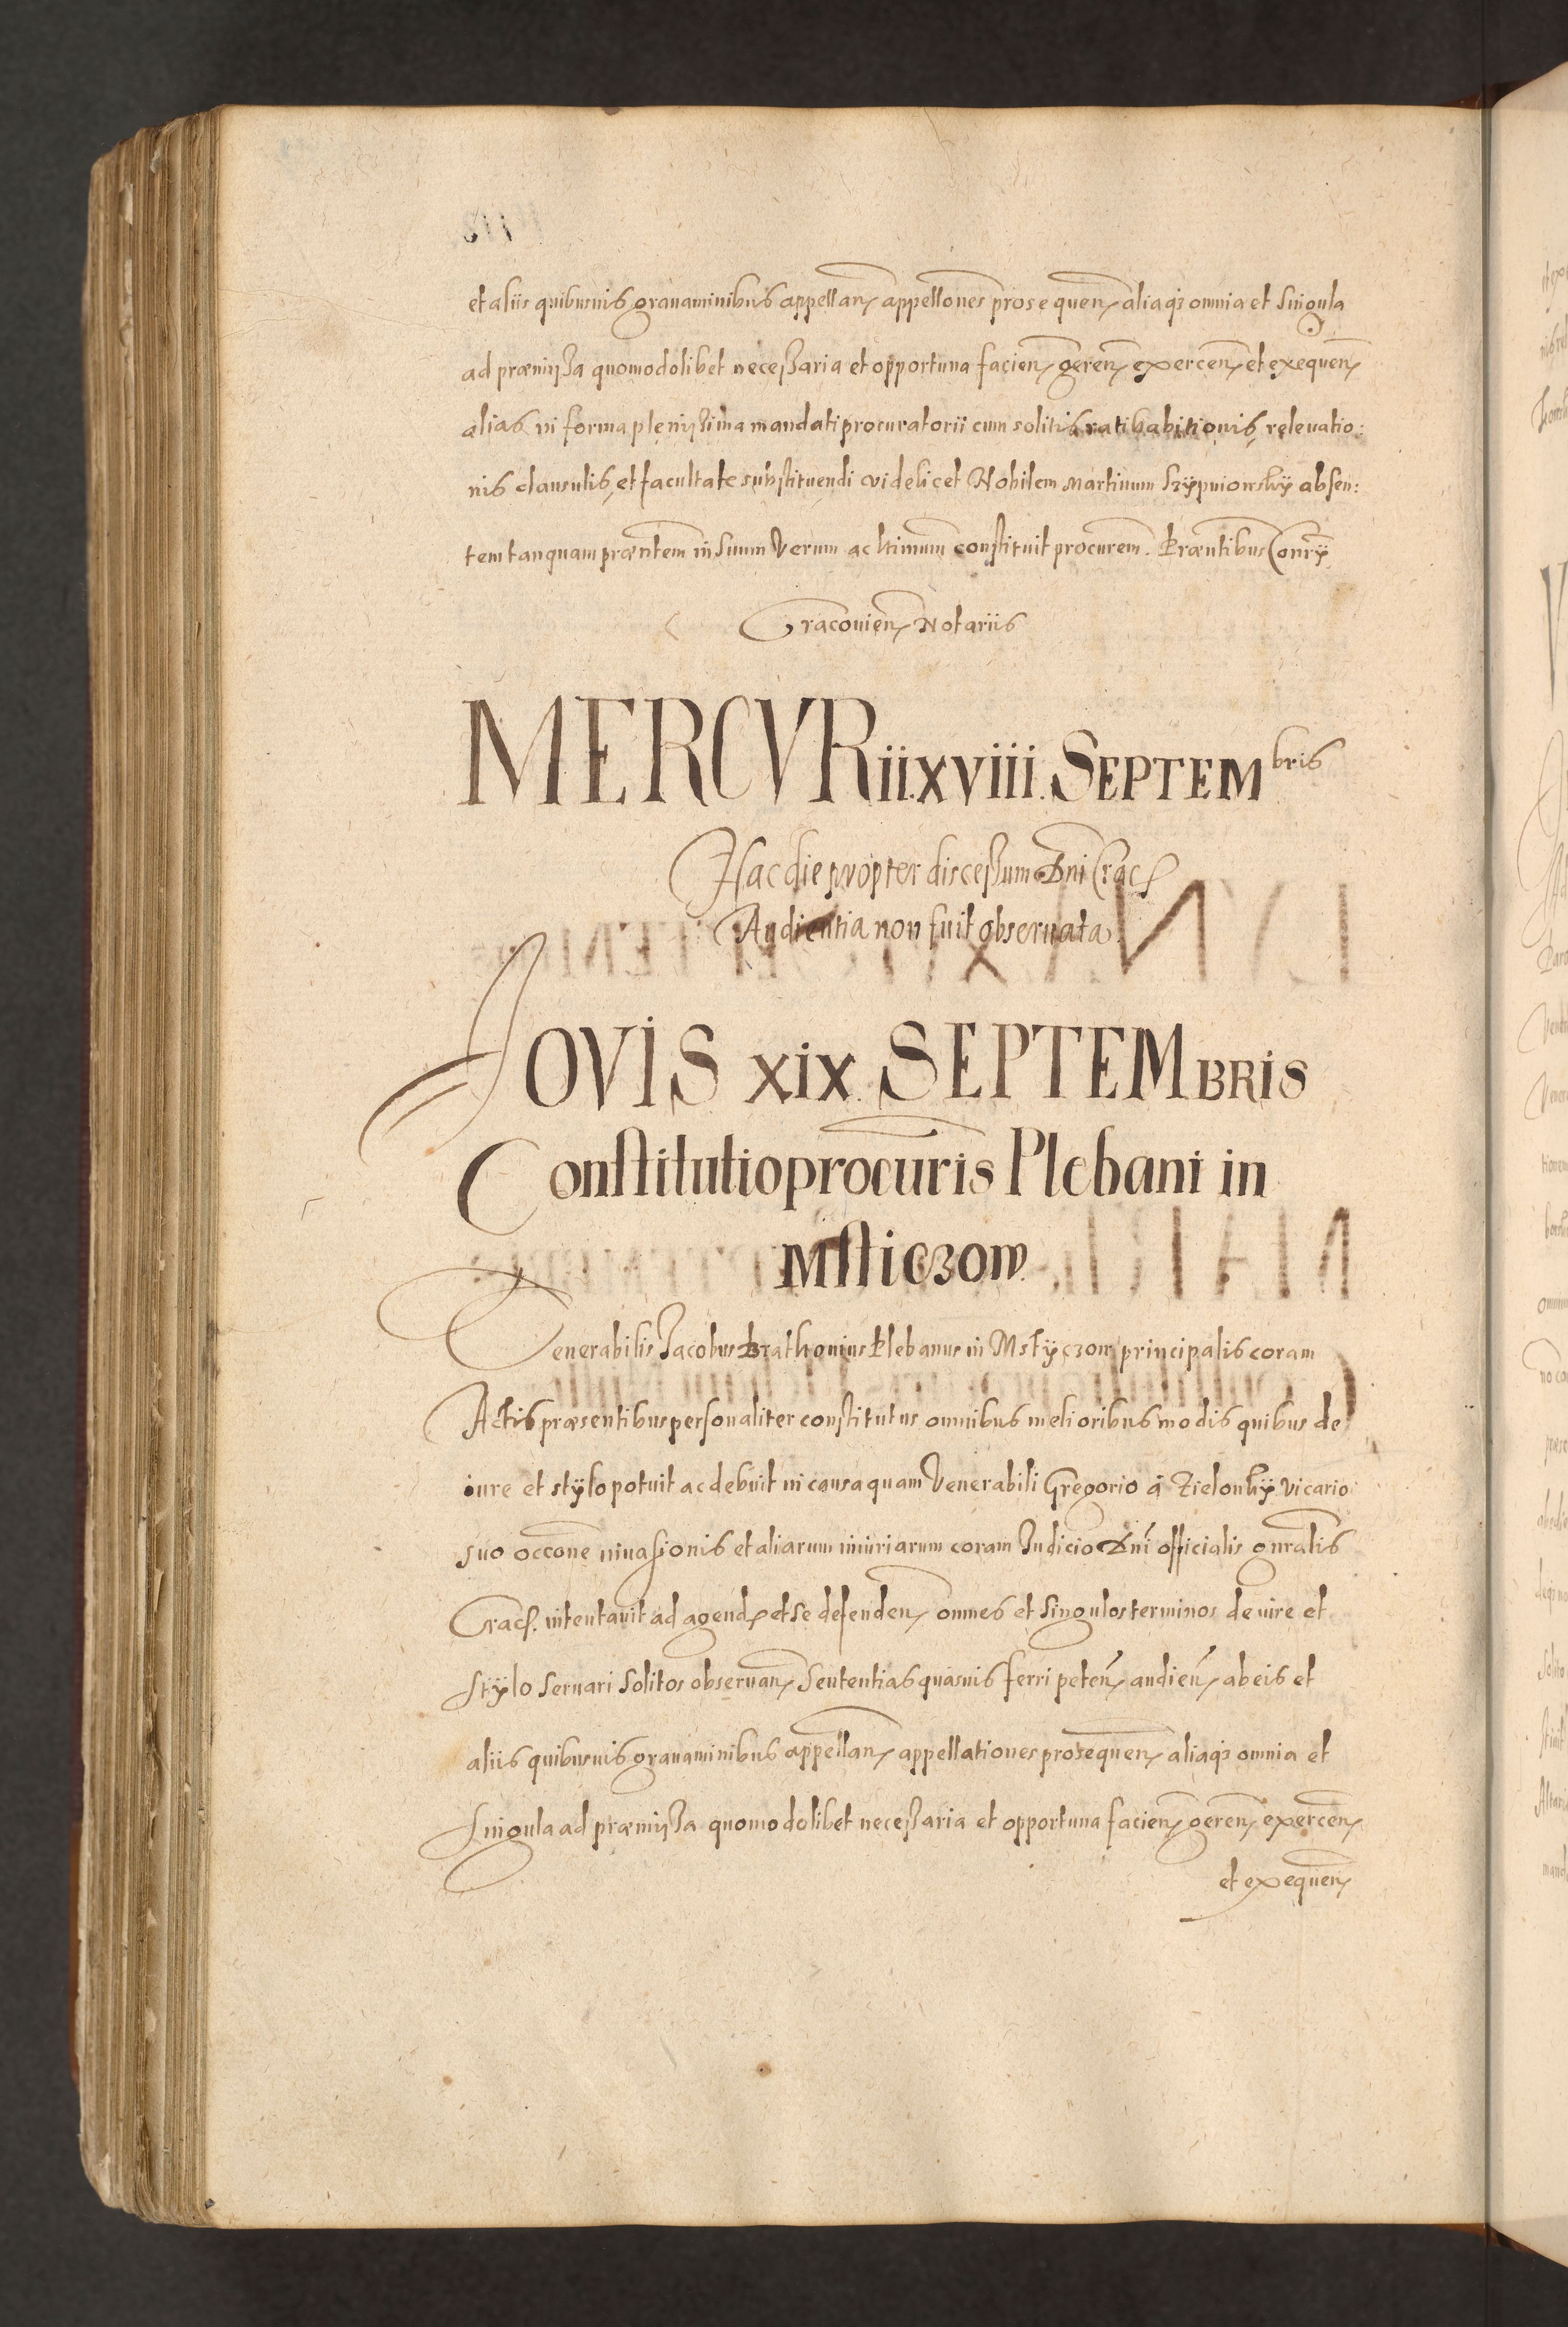 et aliis quibusuis grauaminibus appellan̄ appellōnes prosequen̄ aliaqʒ omnia et singula
ad præmissa quomodolibet necessaria et opportuna facien̄ geren̄ exercen̄ et exequen̄
alias in forma plenissima mandati procuratorii cum solitis ratihabitionis, releuatio:
nis clausulis, et facultate substituendi videlicet Nobilem Martinum absen:
tem tanquam præntem in suum Verum ac ltimum constituit procurem. Præntibus Conrÿ
Cracouien̄ Notariis
MERCVRii. xviii. SEPTEMbris
Hac die propter discessum Dni Crac
Audientia non fuit obseruata
JOVIS xix. SEPTEMBRIS
Constitutio procuris Plebani in
Msticzow.
Venerabilis Jacobus Brathonius Plebanus in Mstÿczow principalis coram
Actis præsentibus personaliter constitutus omnibus melioribus modis quibus de
iure et stÿlo potuit ac debuit in causa quam Venerabili Gregorio à Zielonkÿ vicario
suo occōne inuasionis et aliarum iniuriarum coram Judicio Dni officialis gnralis
Crac. intentauit ad agend et se defenden̄ omnes et singulos terminos de iure et
stÿlo seruari solitos obseruan̄ Sententias quasuis ferri peten̄ audien̄ ab eis et
aliis quibusuis grauaminibus appellan̄ appellationes prosequen̄ aliaqʒ omnia et
singula ad præmissa quomodolibet necessaria et opportuna facien̄ geren̄ exercen̄
et exequen̄